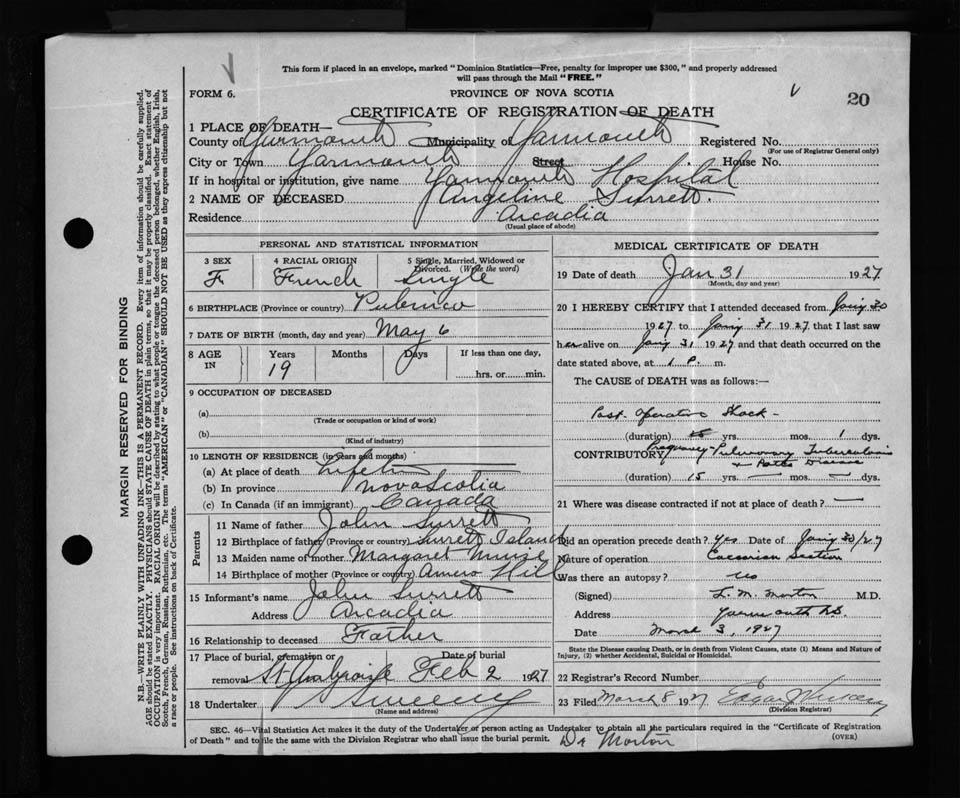 This form if placed in an envelope, marked "Dominion Statistics—Free, penalty for improper use $300," and properly addressed
will pass through the Mail "FREE."
FORM 6. PROVINCE OF NOVA SCOTIA 20
CERTIFICATE OF REGISTRATION OF DEATH
1 PLACE OF DEATH—
County of Yarmouth Municipality of Yarmouth Registered No.
(For use of Registrar General only)
City or Town Yarmouth Street House No.
If in hospital or institution, give name Yarmouth Hospital
2 NAME OF DECEASED Angeline Surrett.
Residence Arcadia
(Usual place of abode)
PERSONAL AND STATISTICAL INFORMATION
3 SEX 4 RACIAL ORIGIN 5 Single, Married, Widowed or
Divorced. (Write the word)
F French Single
6 BIRTHPLACE (Province or country) Pubnico
7 DATE OF BIRTH (month, day and year) May 6
8 AGE IN Years Months Days If less than one day,
19 hrs. or min.
9 OCCUPATION OF DECEASED
(a)
(Trade or occupation or kind of work)
(b)
(Kind of industry)
10 LENGTH OF RESIDENCE (in years and months)
(a) At place of death Life tm
(b) In province Nova Scotia
(c) In Canada (if an immigrant) Canada
Parents
11 Name of father John Surrett
12 Birthplace of father (Province or country) Surrett Island
13 Maiden name of mother Margaret Muise
14 Birthplace of mother (Province or country) Amero Hill
15 Informant's name John Surrett
Address Arcadia
16 Relationship to deceased Father
17 Place of burial, cremation or Date of burial
removal St Ambroise Feb 2 1927
18 Undertaker V S Sweeny
(Name and address)
MEDICAL CERTIFICATE OF DEATH
19 Date of death Jan 31 1927
(Month, day and year)
20 I HEREBY CERTIFY that I attended deceased from Jany 30
1927 to Jany 31 1927 that I last saw
her alive on Jany 31 1927 and that death occurred on the
date stated above, at 1 P. m.
The CAUSE of DEATH was as follows:—
Post-Operative Shock -
(duration) yrs. mos. 1 dys.
CONTRIBUTORY Pregnancy-Pulmonary Tuberculosis
+ Potts Disease
(duration) 15 yrs. — mos. — dys.
21 Where was disease contracted if not at place of death? —
Did an operation precede death? Yes Date of Jany 30/27
Nature of operation Caesarian Section
Was there an autopsy? no
(Signed) L. M. Morton M.D.
Address Yarmouth N.S.
Date March 3, 1927
State the Disease causing Death, or in death from Violent Causes, state (1) Means and Nature of
Injury, (2) whether Accidental, Suicidal or Homicidal.
22 Registrar's Record Number
23 Filed March 8 1927
(Division Registrar)
SEC. 46—Vital Statistics Act makes it the duty of the Undertaker or person acting as Undertaker to obtain all the particulars required in the "Certificate of Registration
of Death" and to file the same with the Division Registrar who shall issue the burial permit. (OVER)
Dr Morton
MARGIN RESERVED FOR BINDING
N.B.—WRITE PLAINLY WITH UNFADING INK—THIS IS A PERMANENT RECORD. Every item of information should be carefully supplied.
AGE should be stated EXACTLY. PHYSICIANS should STATE CAUSE OF DEATH in plain terms, so that it may be properly classified. Exact statement of
OCCUPATION is very important. RACIAL ORIGIN will be described by stating to what people or tongue the deceased person belonged, whether English, Irish,
Scotch, French, German, Russian, Ruthenian, etc. The terms "AMERICAN" or "CANADIAN" SHOULD NOT BE USED as they express citizenship but not
a race or people. See instructions on back of Certificate.